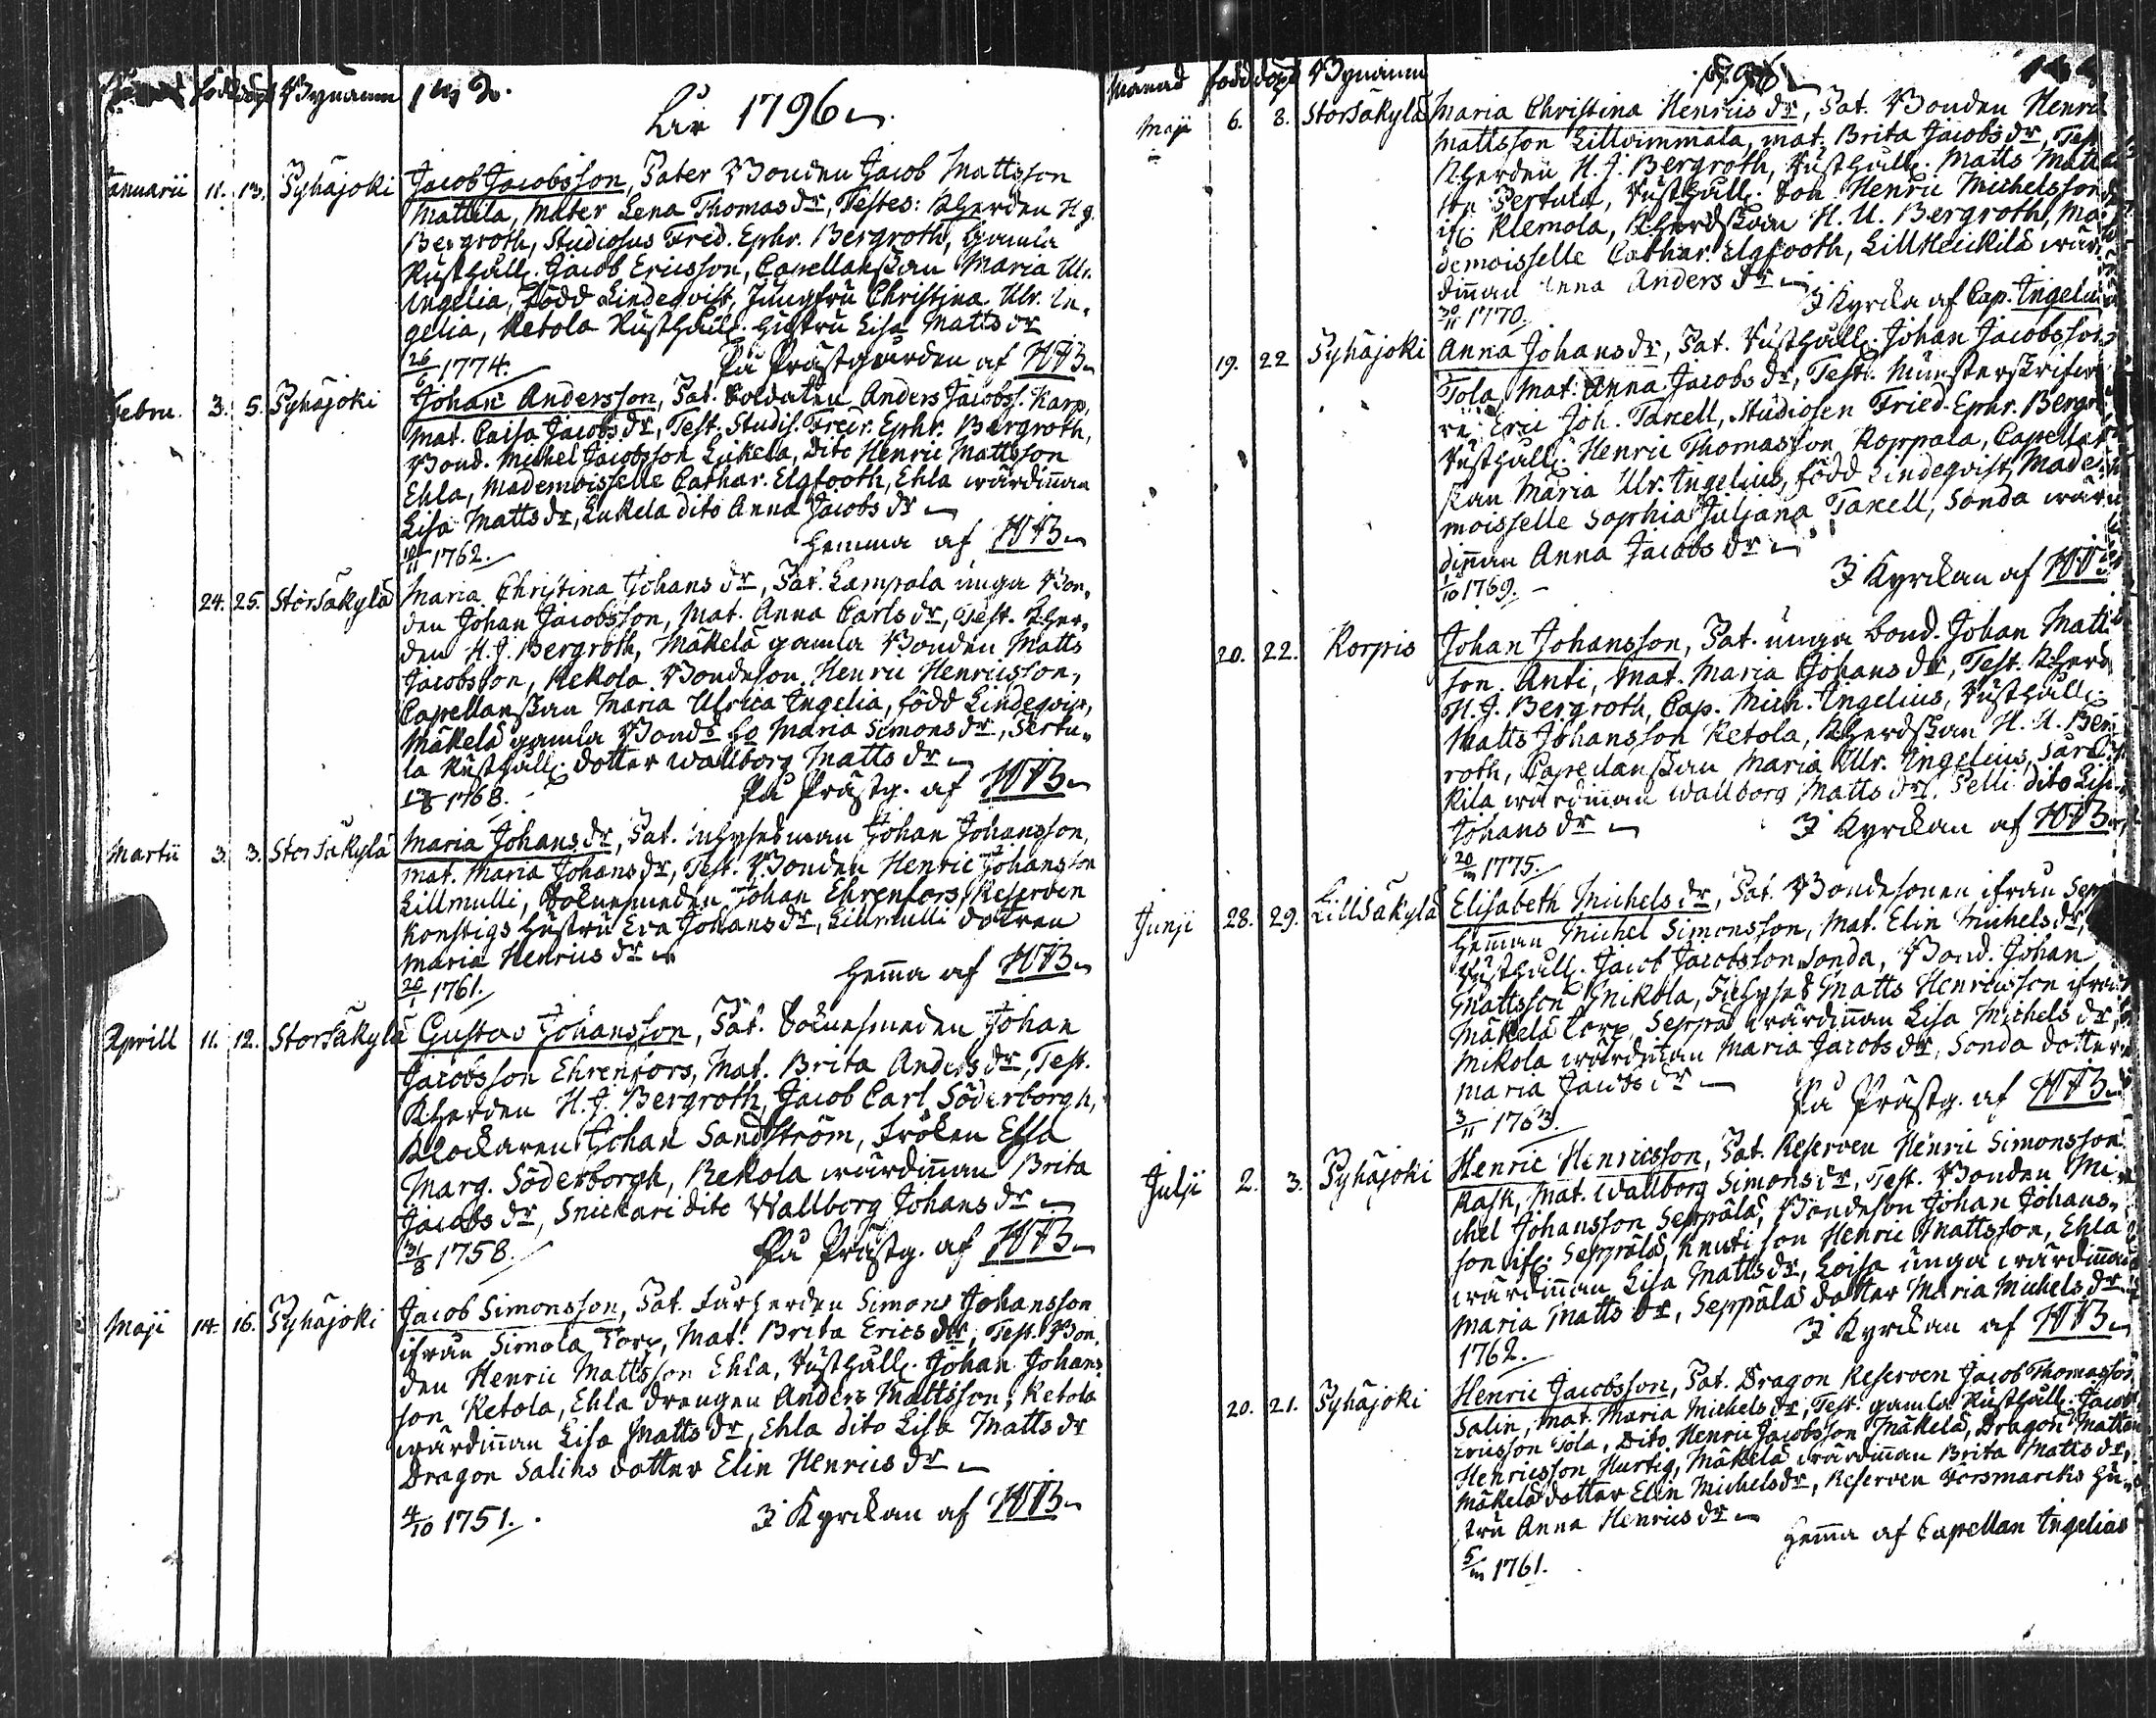 född döpt Bynamn
År 1796
Januarii 11. 13. Pyhäjoki Jacob Jacobsson, Pater Bonden Jacob Mattsson
Mattila, Mater Lena Thomasdr, Testes: Kherden H. J.
Bergroth, Studiosus Fred. Ephr. Bergroth, Gamla
Rusthåll. Jacob Ericsson, Capellanskan Maria Ulr.
Ingelia, född Lindeqvist, Jungfru Christina Ulr. In-
gelia, Ketola Rusthåll. hustru Lisa Mattsdr
26/6 1774. På Prästgården af HJB
Febru. 3. 5. Pyhäjoki Johan Andersson, Pat. Soldaten Anders Jacobss. Karp,
Mat. Caisa Jacobsdr, Test. Studis. Fredr. Ephr. Bergroth,
Bond. Michel Jacobsson Lukela, dito Henric Mattsson
Ehla, Mademoisselle Cathar. Elgfooth, Ehla wärdinnan
Lisa Mattsdr, Lukela dito Anna Jacobsdr
1762. Hemma af HJB
24. 25. Storsäkylä Maria Christina Johansdr, Pat. Lampola unga Bon-
den Johan Jacobsson, Mat. Anna Carlsdr, Test. Kher-
den H. J. Bergroth, Mäkelä gamla Bonden Matts
Jacobsson, Rekola Bondeson Henric Henricsson,
Capellanskan Maria Ulrica Ingelia, född Lindeqvist,
Mäkelä gamla Bonds Maria Simonsdr, Pertu-
la Rusthåll. dotter Wallborg Mattsdr
1768. På Prästg. af HJB
Martii 3. 3. Storsäkylä Maria Johansdr, Pat. Inhysesman Johan Johansson,
Mat. Maria Johansdr, Test. Bonden Henric Johansson
Lillmulli, Soknesmeden Johan Ehrenfors, Reserven
Konstigs hustru Eva Johansdr, Lillmulli dottren
Maria Henricsdr
20/1 1761. Hemma af HJB
Aprill 11. 12. Storsäkylä Gustav Johansson, Pat. Soknesmeden Johan
Jacobsson Ehrenfors, Mat. Brita Andersdr, Test.
Kherden H. J. Bergroth, Jacob Carl Söderborgh,
Klockaren Johan Sandström, Fröken Effa
Marg. Söderborgh, Rekola wärdinnan Brita
Jacobsdr, Snickari dito Wallborg Johansdr
31/8 1758. På Prästg. af HJB
Maji 14. 16. Pyhäjoki Jacob Simonsson, Pat. Fårherden Simon Johansson
ifrån Simola Torp, Mat. Brita Ericsdr, Test. Bon-
den Henric Mattsson Ehla, Rusthåll. Johan Johans-
son Ketola, Ehla drengen Anders Mattsson, Ketola
wärdinnan Lisa Mattsdr, Ehla dito Lisa Mattsdr
Dragon Salins dotter Elin Henricsdr
4/10 1751. I Kyrckan af HJB
Månad född döpt Bynamn 1796
Maji 6. 8. Storsäkylä Maria Christina Henricsdr, Pat. Bonden Henric
Mattsson Lillommala, Mat. Brita Jacobsdr, Test.
Kherden H. J. Bergroth, Rusthåll. Matts Matts
son Pertula, Rusthåll. Son Henric Michelsson
if. Klemola, Kherdskan H. U. Bergroth, Ma-
demoisselle Cathar. Elgfooth, Lillheickilä wär-
dinnan Anna Andersdr
1770. I Kyrcka af Cap. Ingelius
19. 22 Pyhäjoki Anna Johansdr, Pat. Rusthåll. Johan Jacobsson
Tola, Mat. Anna Jacobsdr, Test. Munsterskrifwa-
re Eric Joh. Taxell, Studiosen Fried. Ephr. Bergr
Rusthåll. Henric Thomasson Korppala, Capellan
skan Maria Ulr. Ingelius, född Lindeqvist, Made-
moisselle Sophia Juliana Taxell, Sonda wär-
dinnan Anna Jacobsdr
1769. I Kyrckan af HJB
20. 22. Korpis Johan Johansson, Pat. unga bond. Johan Matts
son Anti, Mat. Maria Johansdr, Test. Kherd
H. J. Bergroth, Cap. Mich. Ingelius, Rusthåll.
Matts Johansson Ketola, Kherdskan H. U. Berg-
roth, Capellanskan Maria Ulr. Ingelius,
kila wärdinnan Wallborg Mattsdr, Pelli dito Lisa
Johansdr I Kyrckan af HJB
1775.
Junji 28. 29. Lillsäkylä Elisabeth Michelsdr, Pat. Bondesonen ifrån Sepp
hemman Michel Simonsson, Mat. Elin Michelsdr,
Rusthåll. Jacob Jacobsson Sonda, Bond. Johan
Mattsson Mikola, Inhyses Matts Henricsson ifrån
Mäkelä Torp, Seppä wärdinnan Lisa Michelsdr,
Mikola wärdinnan Maria Jacobsdr, Sonda dotter
Maria Jacobsdr På Prästg. af HJB
3/11 1763.
Julji 2. 3. Pyhäjoki Henric Henricsson, Pat. Reserven Henric Simonsson
Rask, Mat. Wallborg Simonsdr, Test. Bonden Mi-
chel Johansson Seppälä, Bondeson Johan Johans-
son if. Seppälä, Knuti son Henric Mattsson, Ehla
wärdinnan Lisa Mattsdr, Loisa unga wärdinnan
Maria Mattsdr, Seppälä dotter Maria Michelsdr
1762. I Kyrckan af HJB
20. 21. Pyhäjoki Henric Jacobsson, Pat. Dragon Reserven Jacob Thomasson
Salin, Mat. Maria Michelsdr, Test. gamla Rusthåll. Jacob
Ericsson Tola, Dito Henric Jacobsson Mäkelä, Dragon Matts
Henricsson Hurtig, Mäkelä wärdinnan Brita Mattsdr,
Mäkelä dotter Elin Michelsdr, Reserven Vorsmarcks hu-
stru Anna Henricsdr Hemma af Capellan Ingelius
1761.